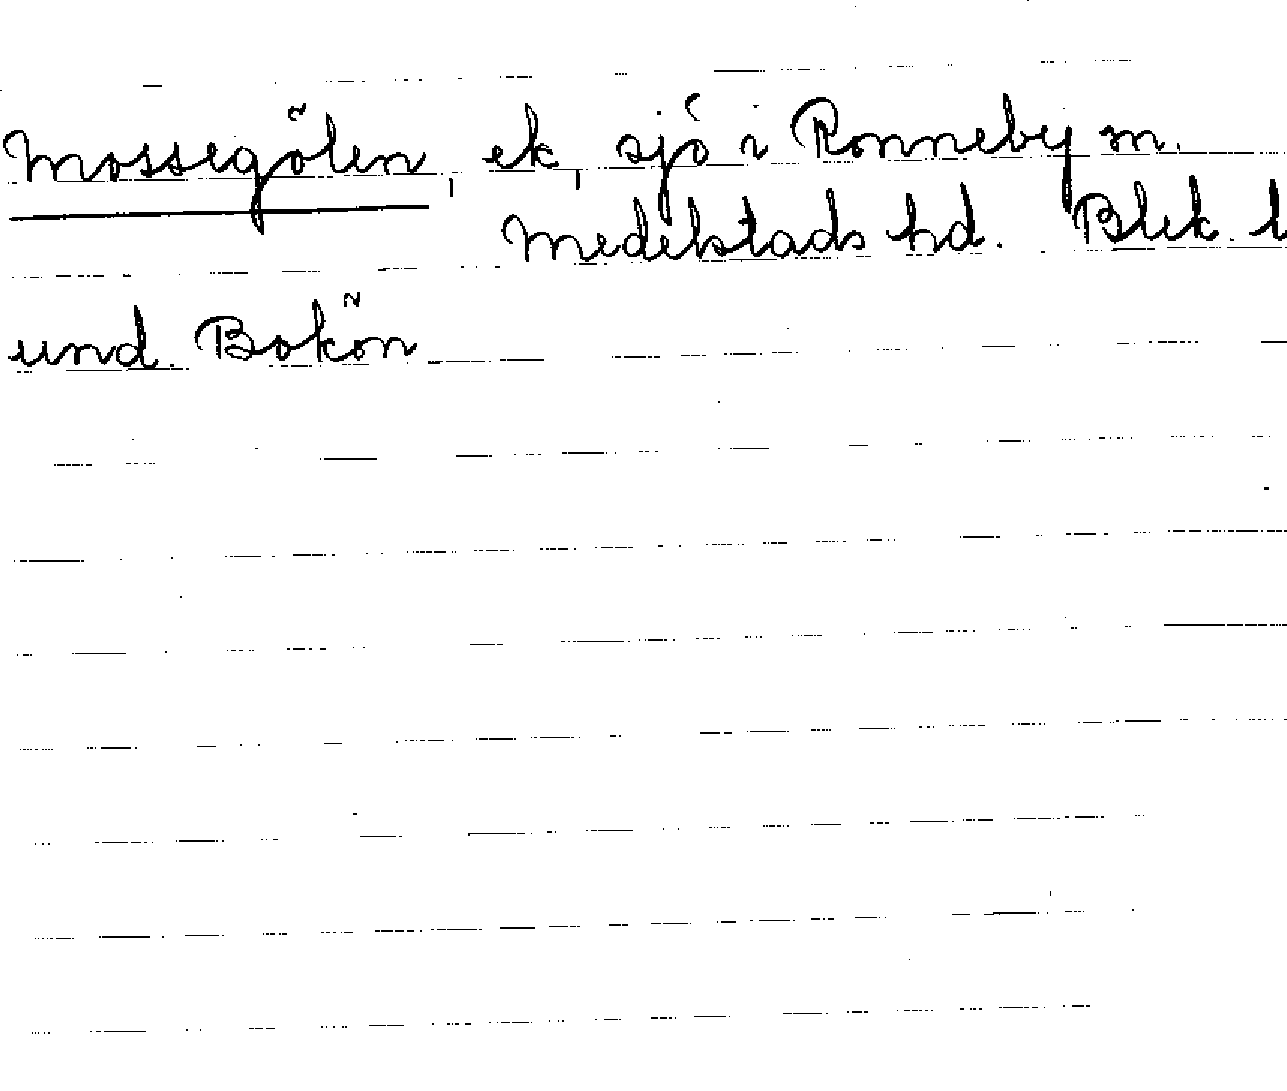 Mossegölen, ek, sjö i Ronneby sn.
Medelstads hd. Blek. l
und. Bokön